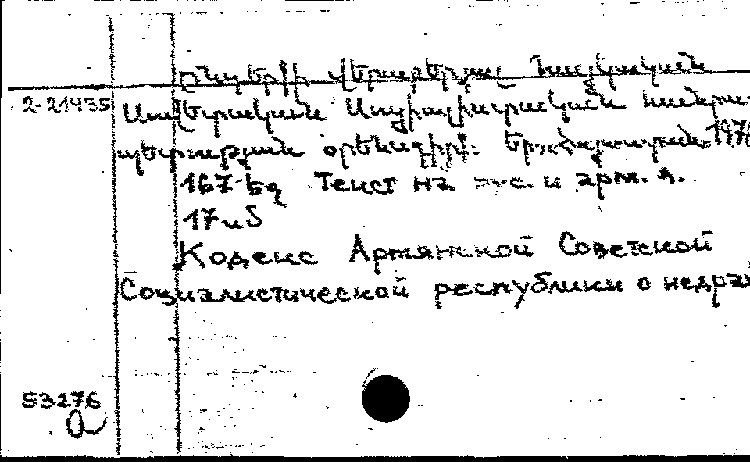 Ընդերքի վերաբերյալ Հայկական
2-21435 Սովետական Սոցիալիստական հանրա-
պետության օրենսգիրք: Եր., Հայաստան, 197
167 էջ Текст на рус. и арм. я.
17 и 5
Кодекс Армянской Советской
Социалистической республики о недрах
53276